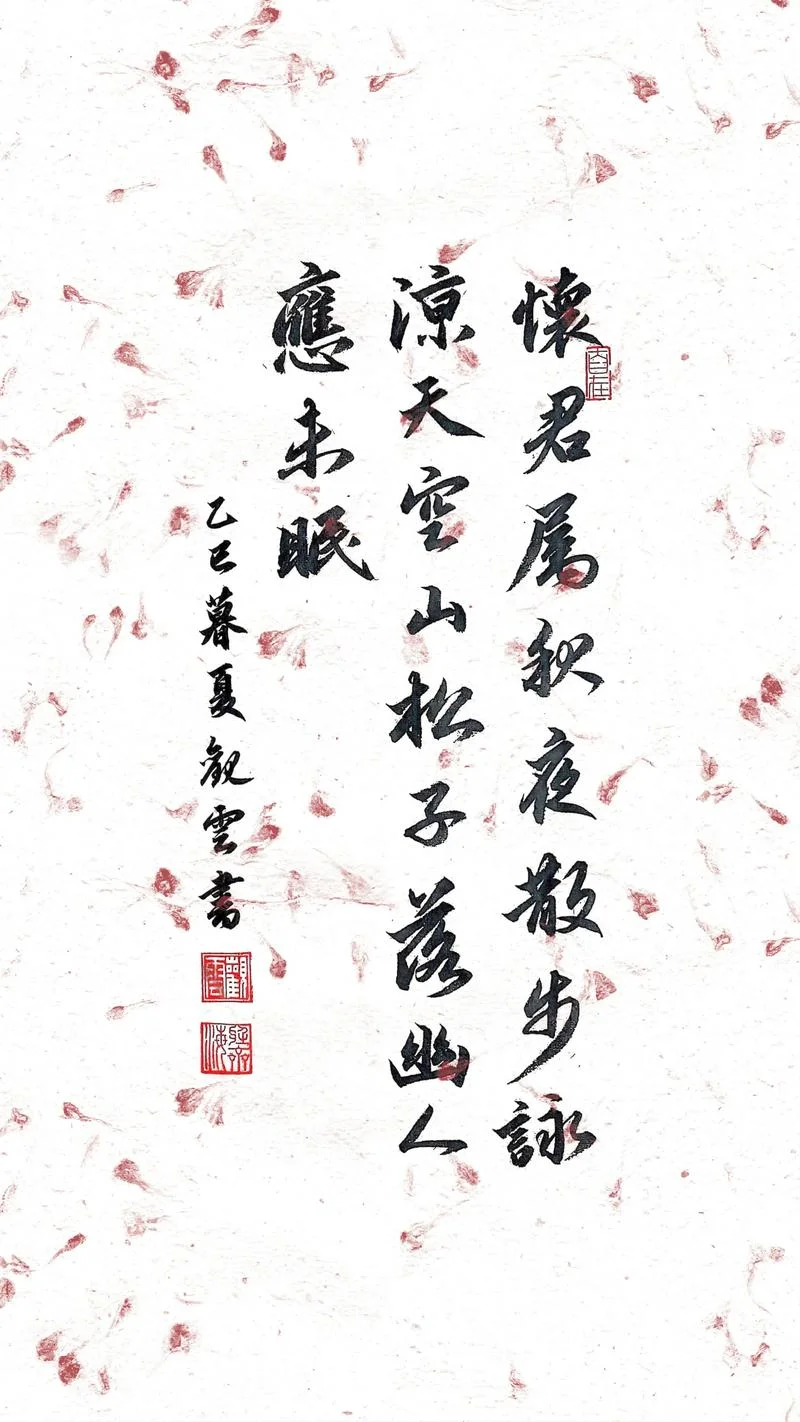 懷君属秋夜散步詠
涼天空山松子落幽人
應未眠
乙巳暮夏觀雲書
觀雲